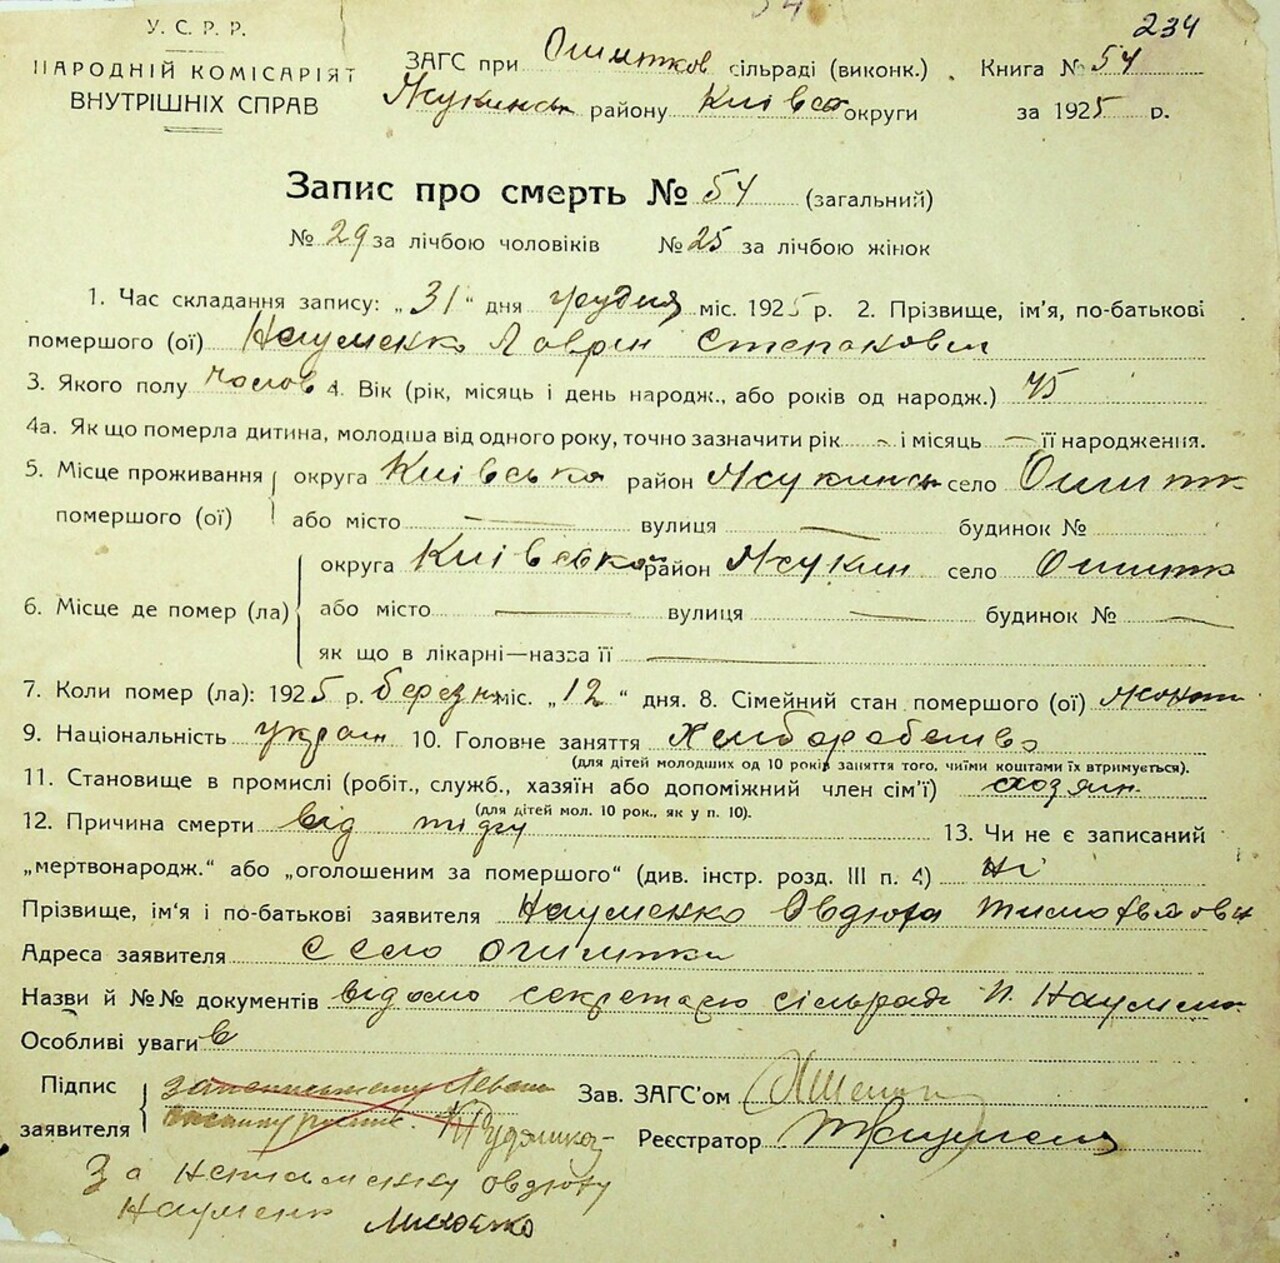 234
У. С. Р. Р.
НАРОДНІЙ КОМІСАРІЯТ
ВНУТРІШНІХ СПРАВ
ЗАГС при Ошитков сільраді (виконк.) Книга № 54
району Київсо округи за 1925 р.
Запис про смерть № 54 (загальний)
№ 29 за лічбою чоловіків № 25 за лічбою жінок
1. Час складання запису: „31“ дня грудня міс. 1925 р. 2. Прізвище, ім'я, по-батькові
помершого (ої) Науменко Лаврін Степанович
3. Якого полу чолов 4. Вік (рік, місяць і день народж., або років од народж.) 45
4а. Як що померла дитина, молодша від одного року, точно зазначити рік — і місяць — її народження.
5. Місце проживання округа Київська район село Ошитк
помершого (ої) або місто — вулиця — будинок №
округа Київська район село Ошитк
6. Місце де помер (ла) або місто — вулиця — будинок № —
як що в лікарні—назва її —
7. Коли помер (ла): 1925 р. березня міс. „12“ дня. 8. Сімейний стан помершого (ої) жонат
9. Національність україн 10. Головне заняття хліборобство
(для дітей молодших од 10 років заняття того, чиїми коштами їх втримується).
11. Становище в промислі (робіт., служб., хазяїн або допоміжний член сім'ї) схозяин
(для дітей мол. 10 рок., як у п. 10).
12. Причина смерти від 13. Чи не є записаний
„мертвонародж.“ або „оголошеним за помершого“ (див. інстр. розд. III п. 4) ні
Прізвище, ім'я і по-батькові заявителя Науменко Овдюта
Адреса заявителя село Ошитки
Назви й №№ документів відомо секретарю сільради П. Науменк
Особливі уваги
Підпис
заявителя
Зав. ЗАГС'ом
Реєстратор
За неписьменну Овдюту
Науменк